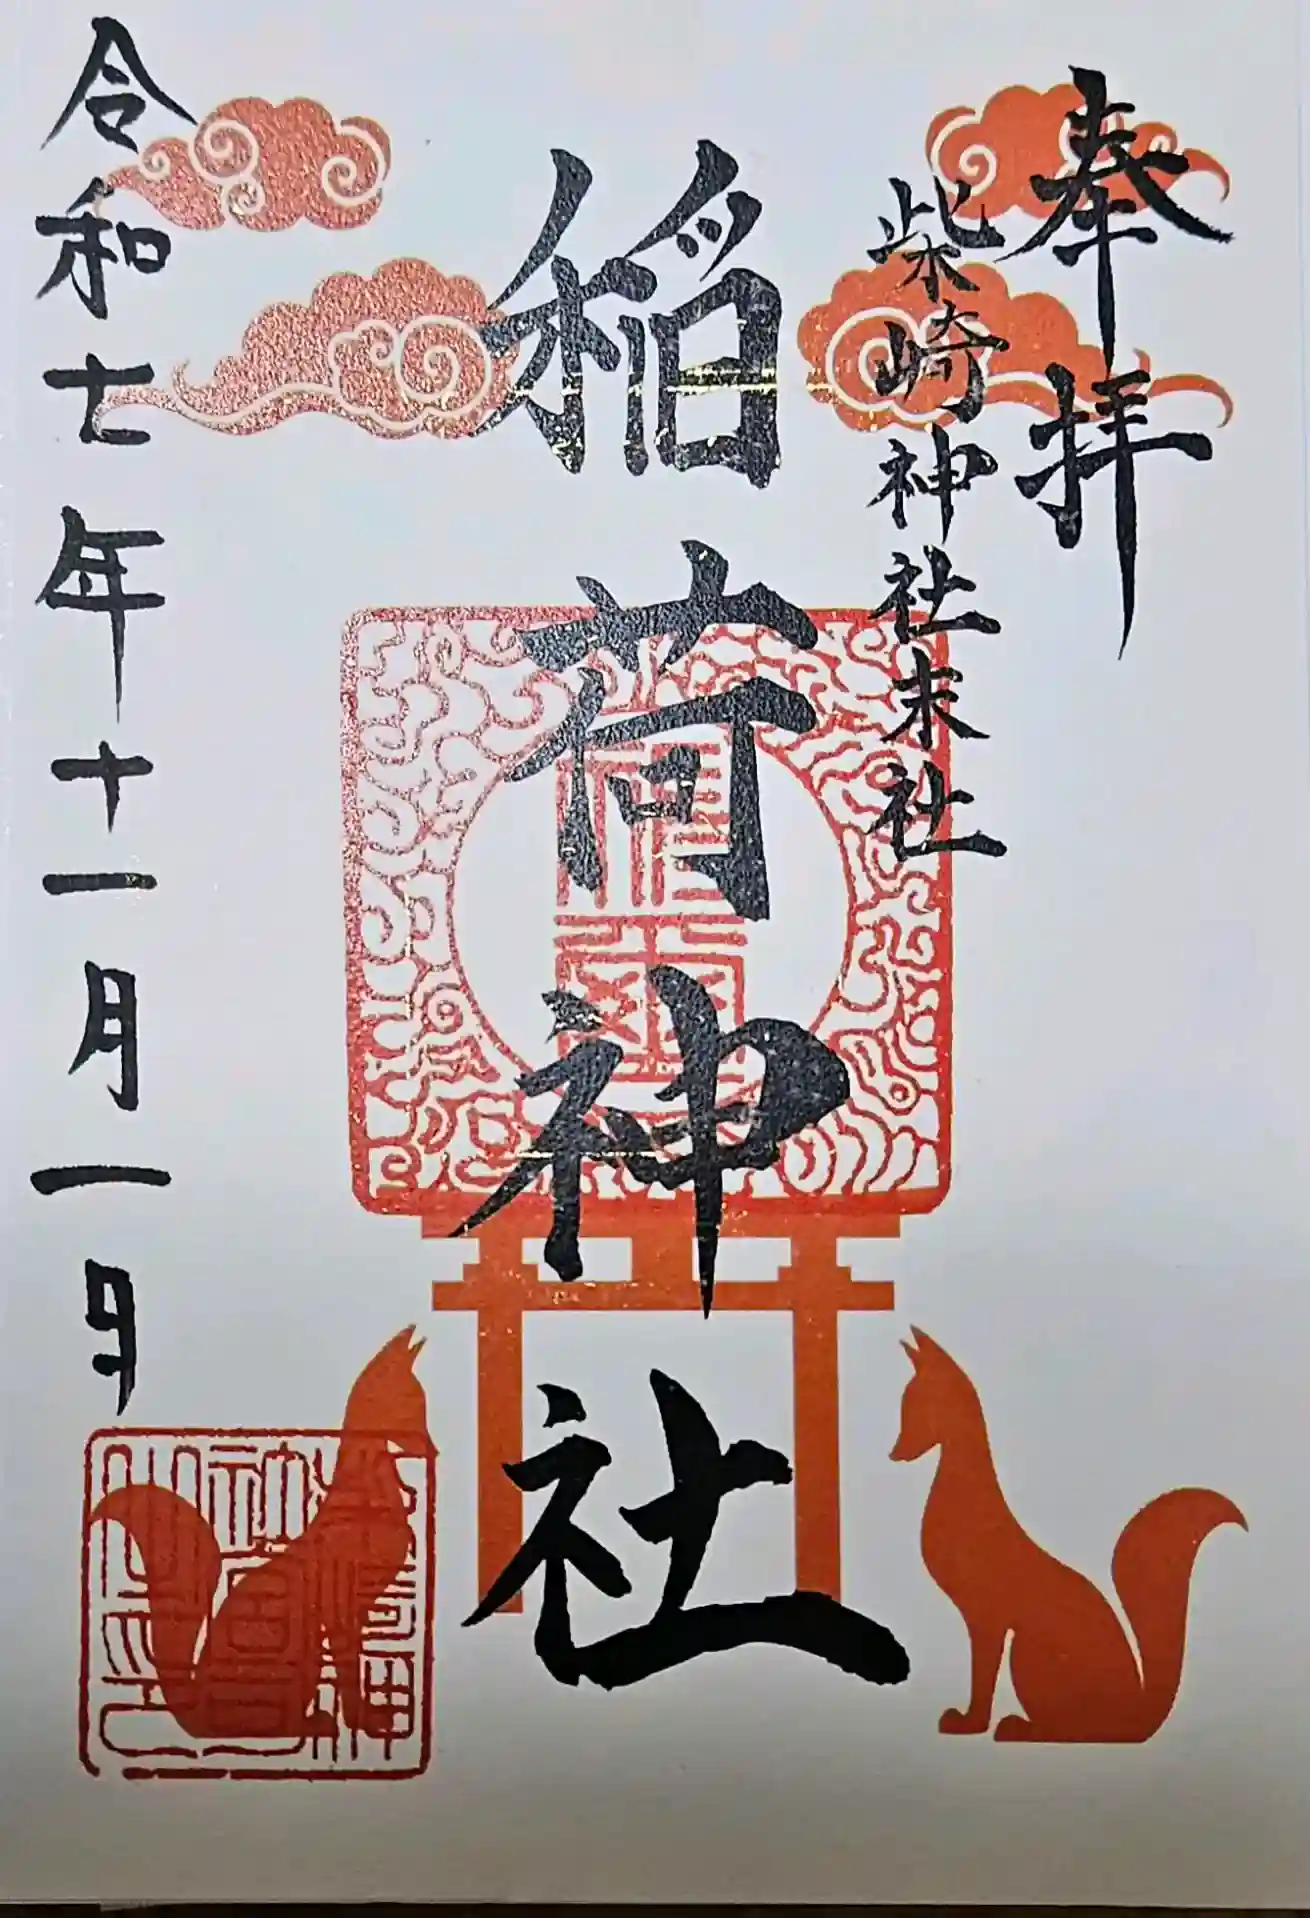 奉拝
柴崎神社末社
稲荷神社
令和七年十一月一日